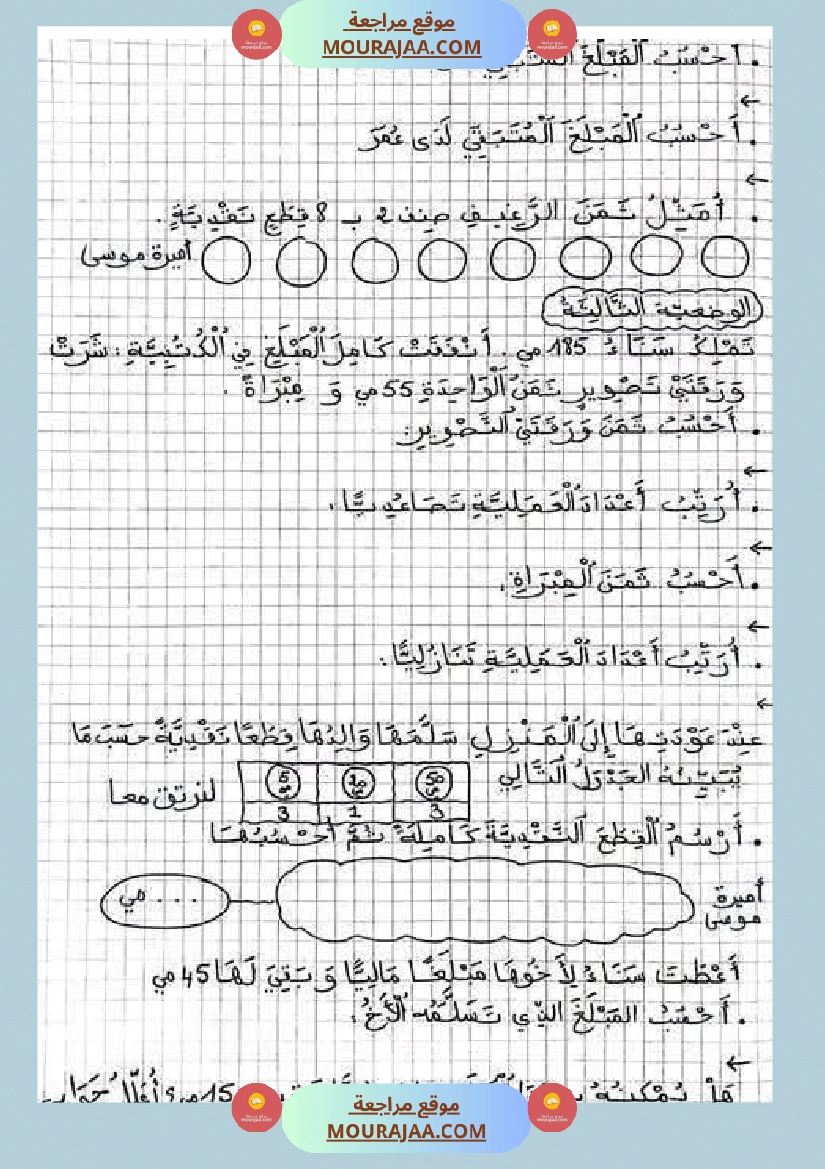 موقع مراجعة
MOURAJAA.COM
. أَحْسُبُ الْمَبْلَغَ
←
. أَحْسُبُ الْمَبْلَغَ الْمُتَبَقِّيَ لَدَى عُمَرَ
←
. أُمَثِّلُ ثَمَنَ الرَّغِيفِ صنف 2 بـ 8 قِطَعٍ نَقْدِيَّةٍ .
أميرة موسى
الوضعيّة الثَّالِثَةُ
تَمْلِكُ سَنَاءُ 185 مي . أَنْفَقَتْ كَامِلَ الْمَبْلَغِ فِي الْكُتُبِيَّةِ : شَرَتْ
وَرَقَتَيْ تَصْوِيرٍ ثَمَنُ الْوَاحِدَةِ 55 مي وَ مِبْرَاةً .
. أَحْسُبُ ثَمَنَ وَرَقَتَيْ التَّصْوِيرِ:
←
. أُرَتِّبُ أَعْدَادَ الْعَمَلِيَّةِ تَصَاعُدِيًّا .
←
. أَحْسُبُ ثَمَنَ الْمِبْرَاةِ.
←
. أُرَتِّبُ أَعْدَادَ الْعَمَلِيَّةِ تَنَازُلِيًّا :
←
عِنْدَ عَوْدَتِهَا إِلَى الْمَنْزِلِ سَلَّمَهَا وَالِدُهَا قِطَعًا نَقْدِيَّةً حَسَبَ مَا
يُبَيِّنُهُ الجَدْوَلُ التَّالِي
50 مي 10 مي 5 مي
3 1 3
لنرتق معا
. أَرْسُمُ الْقِطَعَ النَّقْدِيَّةَ كَامِلَةً ثُمَّ أَحْسُبُهَا
أميرة موسى
... مي
أَعْطَتْ سَنَاءُ لِأَخُوهَا مَبْلَغًا مَالِيًّا وَ بَقِيَ لَهَا 45 مي
. أَحْسُبُ المَبْلَغَ الذِّي تَسَلَّمُهُ الْأَخُ :
←
هَلْ يُمْكِنُهُ
موقع مراجعة
MOURAJAA.COM